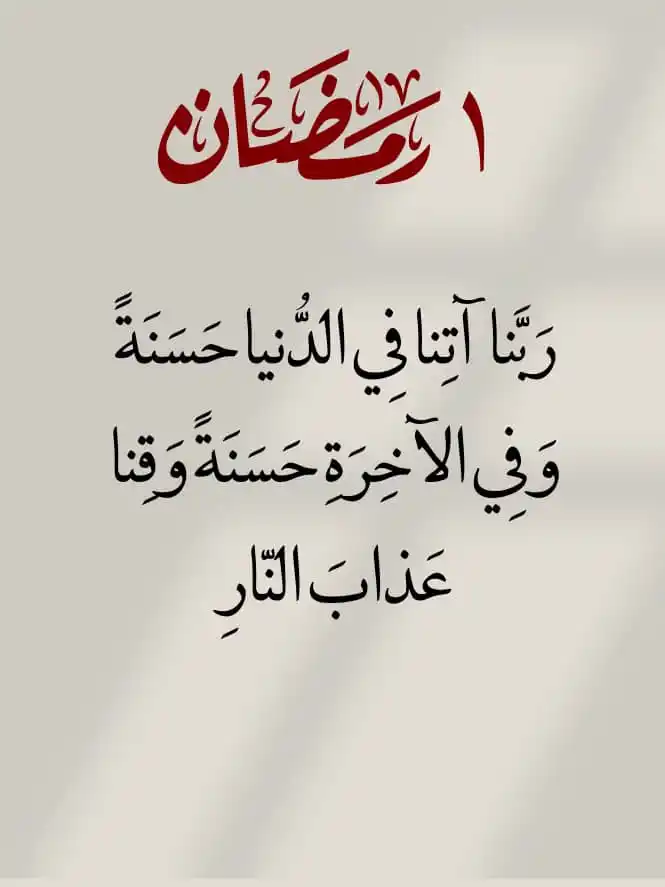 ١ رمضان
رَبَّنا آتِنا فِي الدُّنيا حَسَنَةً
وَفِي الآخِرَةِ حَسَنَةً وَقِنا
عَذابَ النّارِ